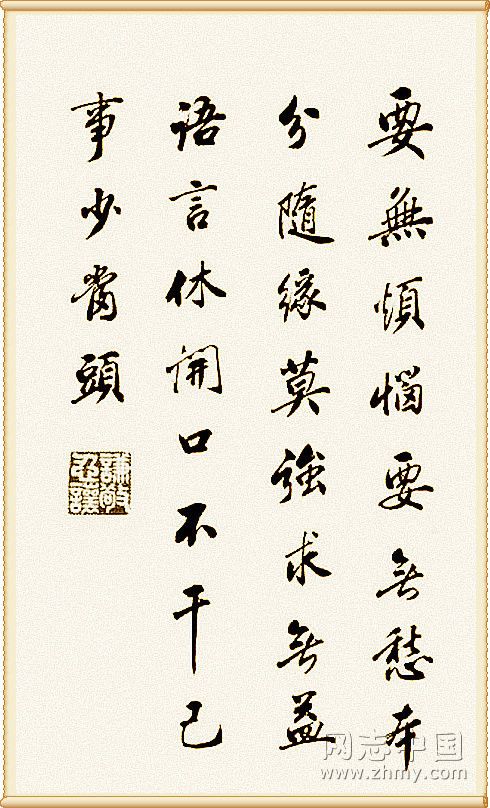 要無煩惱要无愁本
分随緣莫強求無益
语言休開口不干己
事少當頭
网志中国
www.zhmy.com